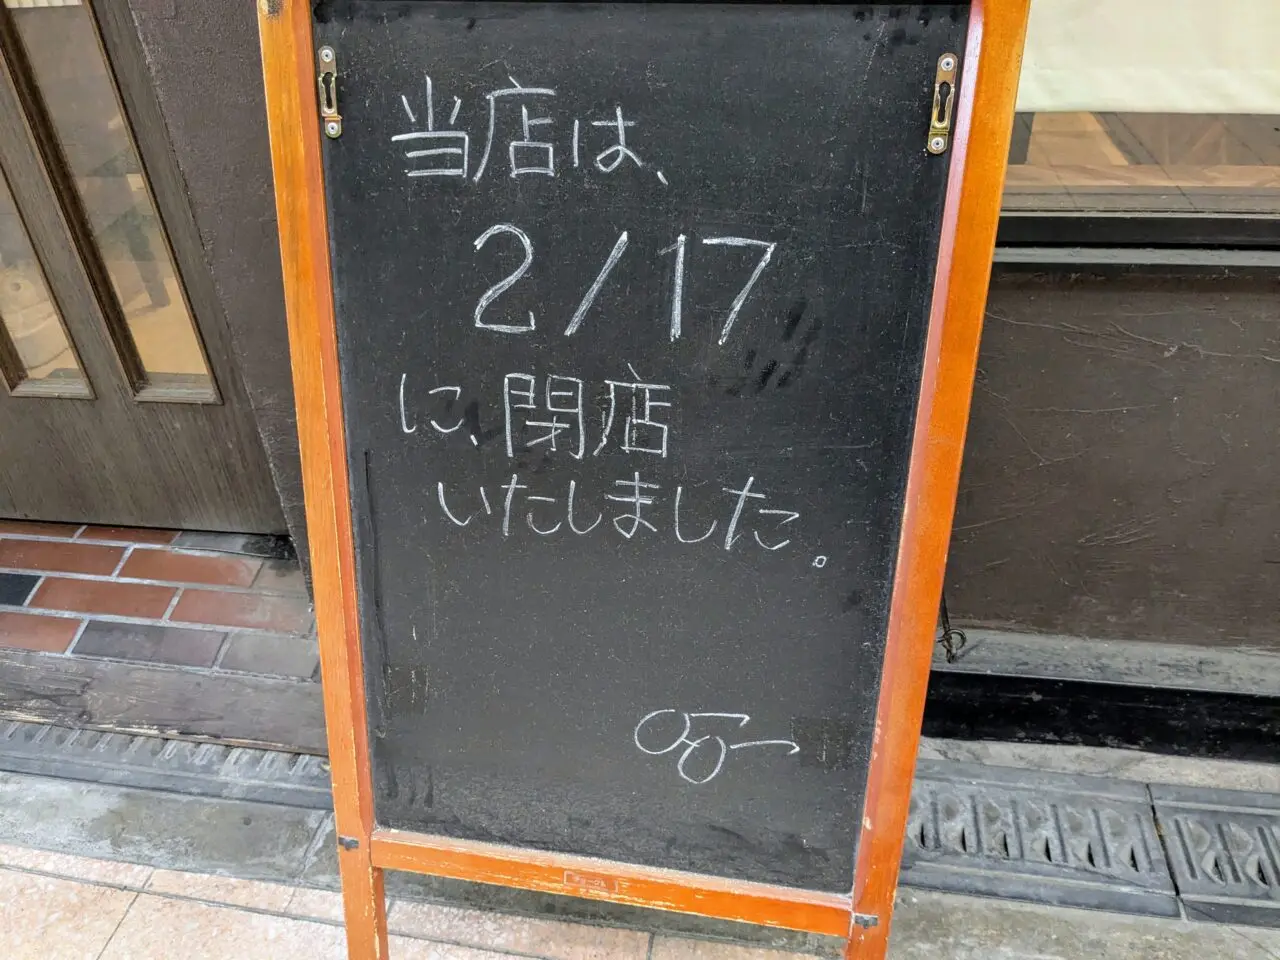 当店は、
2/17
に、閉店
いたしました。